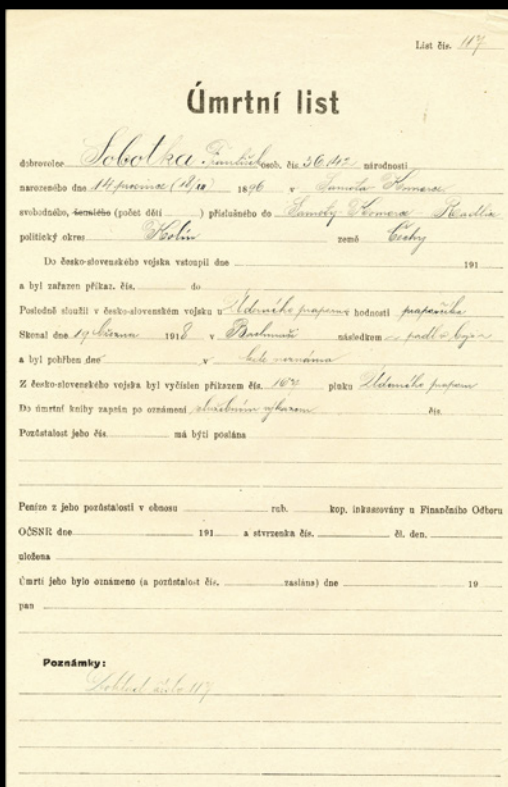 List čís. 117
Úmrtní list
dobrovolec Sobotka František osob. čís. 36142 národnosti
narozeného dne 14 prosince (18/12) 1896 v Samota Komorce
svobodného, ženatého (počet dětí ) příslušného do Samoty Komorce Radlice
politický okres Kolín země Čechy
Do česko-slovenského vojska vstoupil dne 191
a byl zařazen příkaz. čís. do
Posledně sloužil v česko-slovenském vojsku u Úderného praporu hodnosti praporčíka
Skonal dne 19 března 1918 v Bachmači následkem padl v boji
a byl pohřben dne v kde neznámo
Z česko-slovenského vojska byl vyčíslen příkazem čís. 167 pluku Úderného prapor
Do úmrtní knihy zapsán po oznámení služebním výkazem čís.
Pozůstalost jeho čís. má býti poslána
Peníze z jeho pozůstalosti v obnosu rub. kop. inkassovány u Finančního Odboru
OČSNR dne 191 a stvrzenka čís. čl. den.
uložena
Úmrtí jeho bylo oznámeno (a pozůstalost čís. zaslána) dne 19
pan
Poznámky:
číslo 117